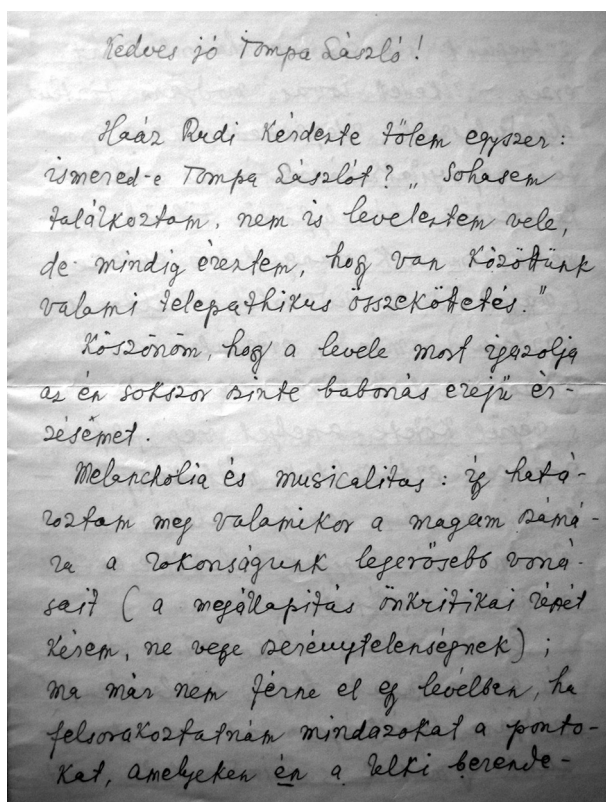 Kedves jó Tompa László!
Haáz Rudi kérdezte tőlem egyszer:
ismered-e Tompa Lászlót? „Sohasem
találkoztam, nem is leveleztem vele,
de mindig éreztem, hogy van közöttünk
valami telepathikus összeköttetés."
Köszönöm, hogy a levele most igazolja
az én sokszor szinte babonás erejű ér-
zésemet.
Melancholia és musicalitas: így hatá-
roztam meg valamikor a magam számá-
ra a rokonságunk legerősebb voná-
sait (a megállapítás önkritikai részét
kérem, ne vegye szerénytelenségnek);
ma már nem férne el egy levélben, ha
felsorakoztatnám mindazokat a ponto-
kat, amelyeken én a lelki berende-